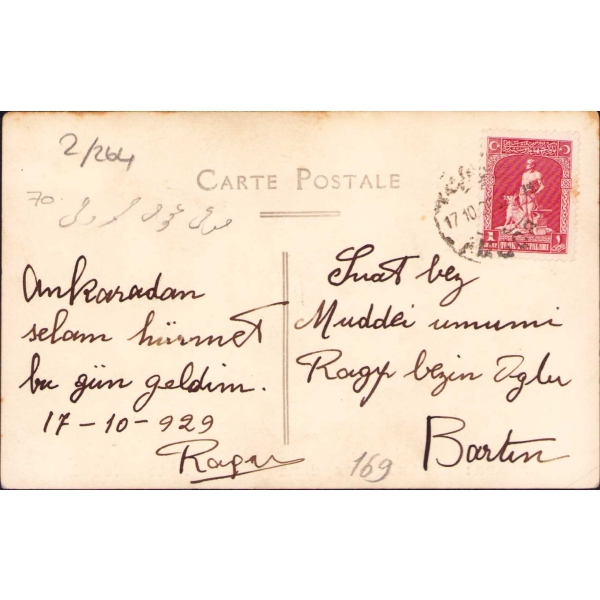 2/264
CARTE POSTALE
70
17.10
Ankaradan
selam hürmet
bu gün geldim.
17-10-929
Ragıp
Suat bey
Muddei umumi
Ragıp beyin Oglu
Bartın
169